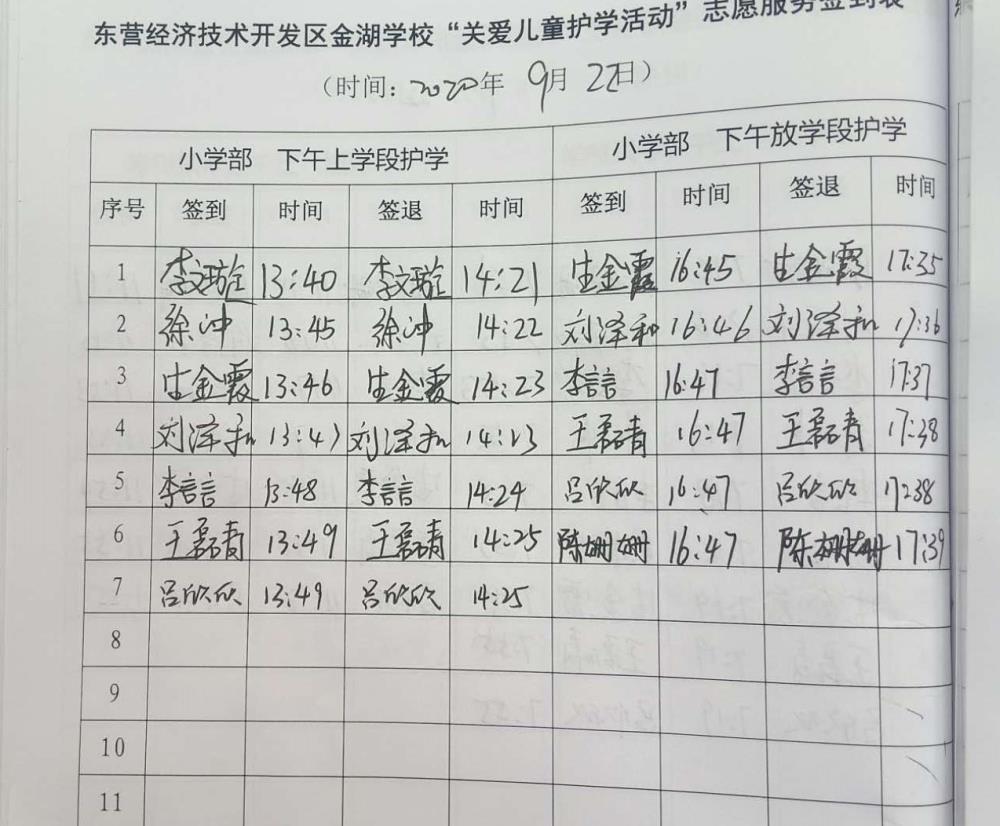 东营经济技术开发区金湖学校“关爱儿童护学活动”志愿服务签到表
（时间：2020年 9月 22日）
小学部 下午上学段护学 小学部 下午放学段护学
序号 签到 时间 签退 时间 签到 时间 签退 时间
1 李文璇 13:40 李文璇 14:21 生金霞 16:45 生金霞 17:35
2 徐冲 13:45 徐冲 14:22 刘泽和 16:46 刘泽和 17:36
3 生金霞 13:46 生金霞 14:23 李言言 16:47 李言言 17:37
4 刘泽和 13:47 刘泽和 14:23 王磊青 16:47 王磊青 17:38
5 李言言 13:48 李言言 14:24 吕欣欣 16:47 吕欣欣 17:38
6 王磊青 13:49 王磊青 14:25 陈姗姗 16:47 陈姗姗 17:39
7 吕欣欣 13:49 吕欣欣 14:25
8
9
10
11